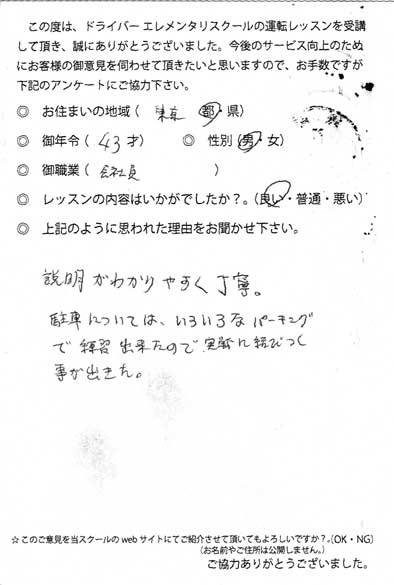 この度は、ドライバーエレメンタリスクールの運転レッスンを受講
して頂き、誠にありがとうございました。今後のサービス向上のため
にお客様の御意見を伺わせて頂きたいと思いますので、お手数ですが
下記のアンケートにご協力下さい。
◎ お住まいの地域（ 東京 都・県）
◎ 御年令（ 43 才） ◎ 性別（男・女）
◎ 御職業（ 会社員 ）
◎ レッスンの内容はいかがでしたか？。（良い・普通・悪い）
◎ 上記のように思われた理由をお聞かせ下さい。
説明がわかりやすく丁寧。
駐車については、いろいろなパーキング
で練習出来たので実戦に結びつく
事が出きた。
☆このご意見を当スクールのwebサイトにてご紹介させて頂いてもよろしいですか？。（OK・NG）
（お名前やご住所は公開しません。）
ご協力ありがとうございました。